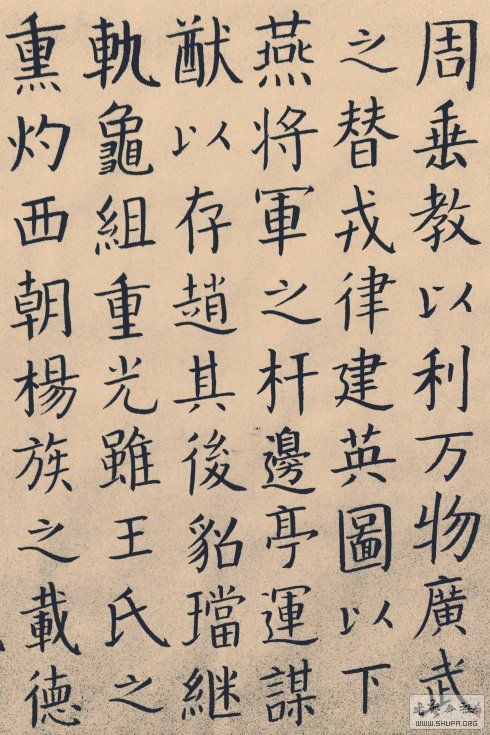 周垂教以利万物廣武
之替戎律建英圖以下
燕將軍之杆邊亭運謀
猷以存趙其後貂璫継
軌龜組重光雖王氏之
熏灼西朝楊族之載德
WWW.SHUFA.ORG